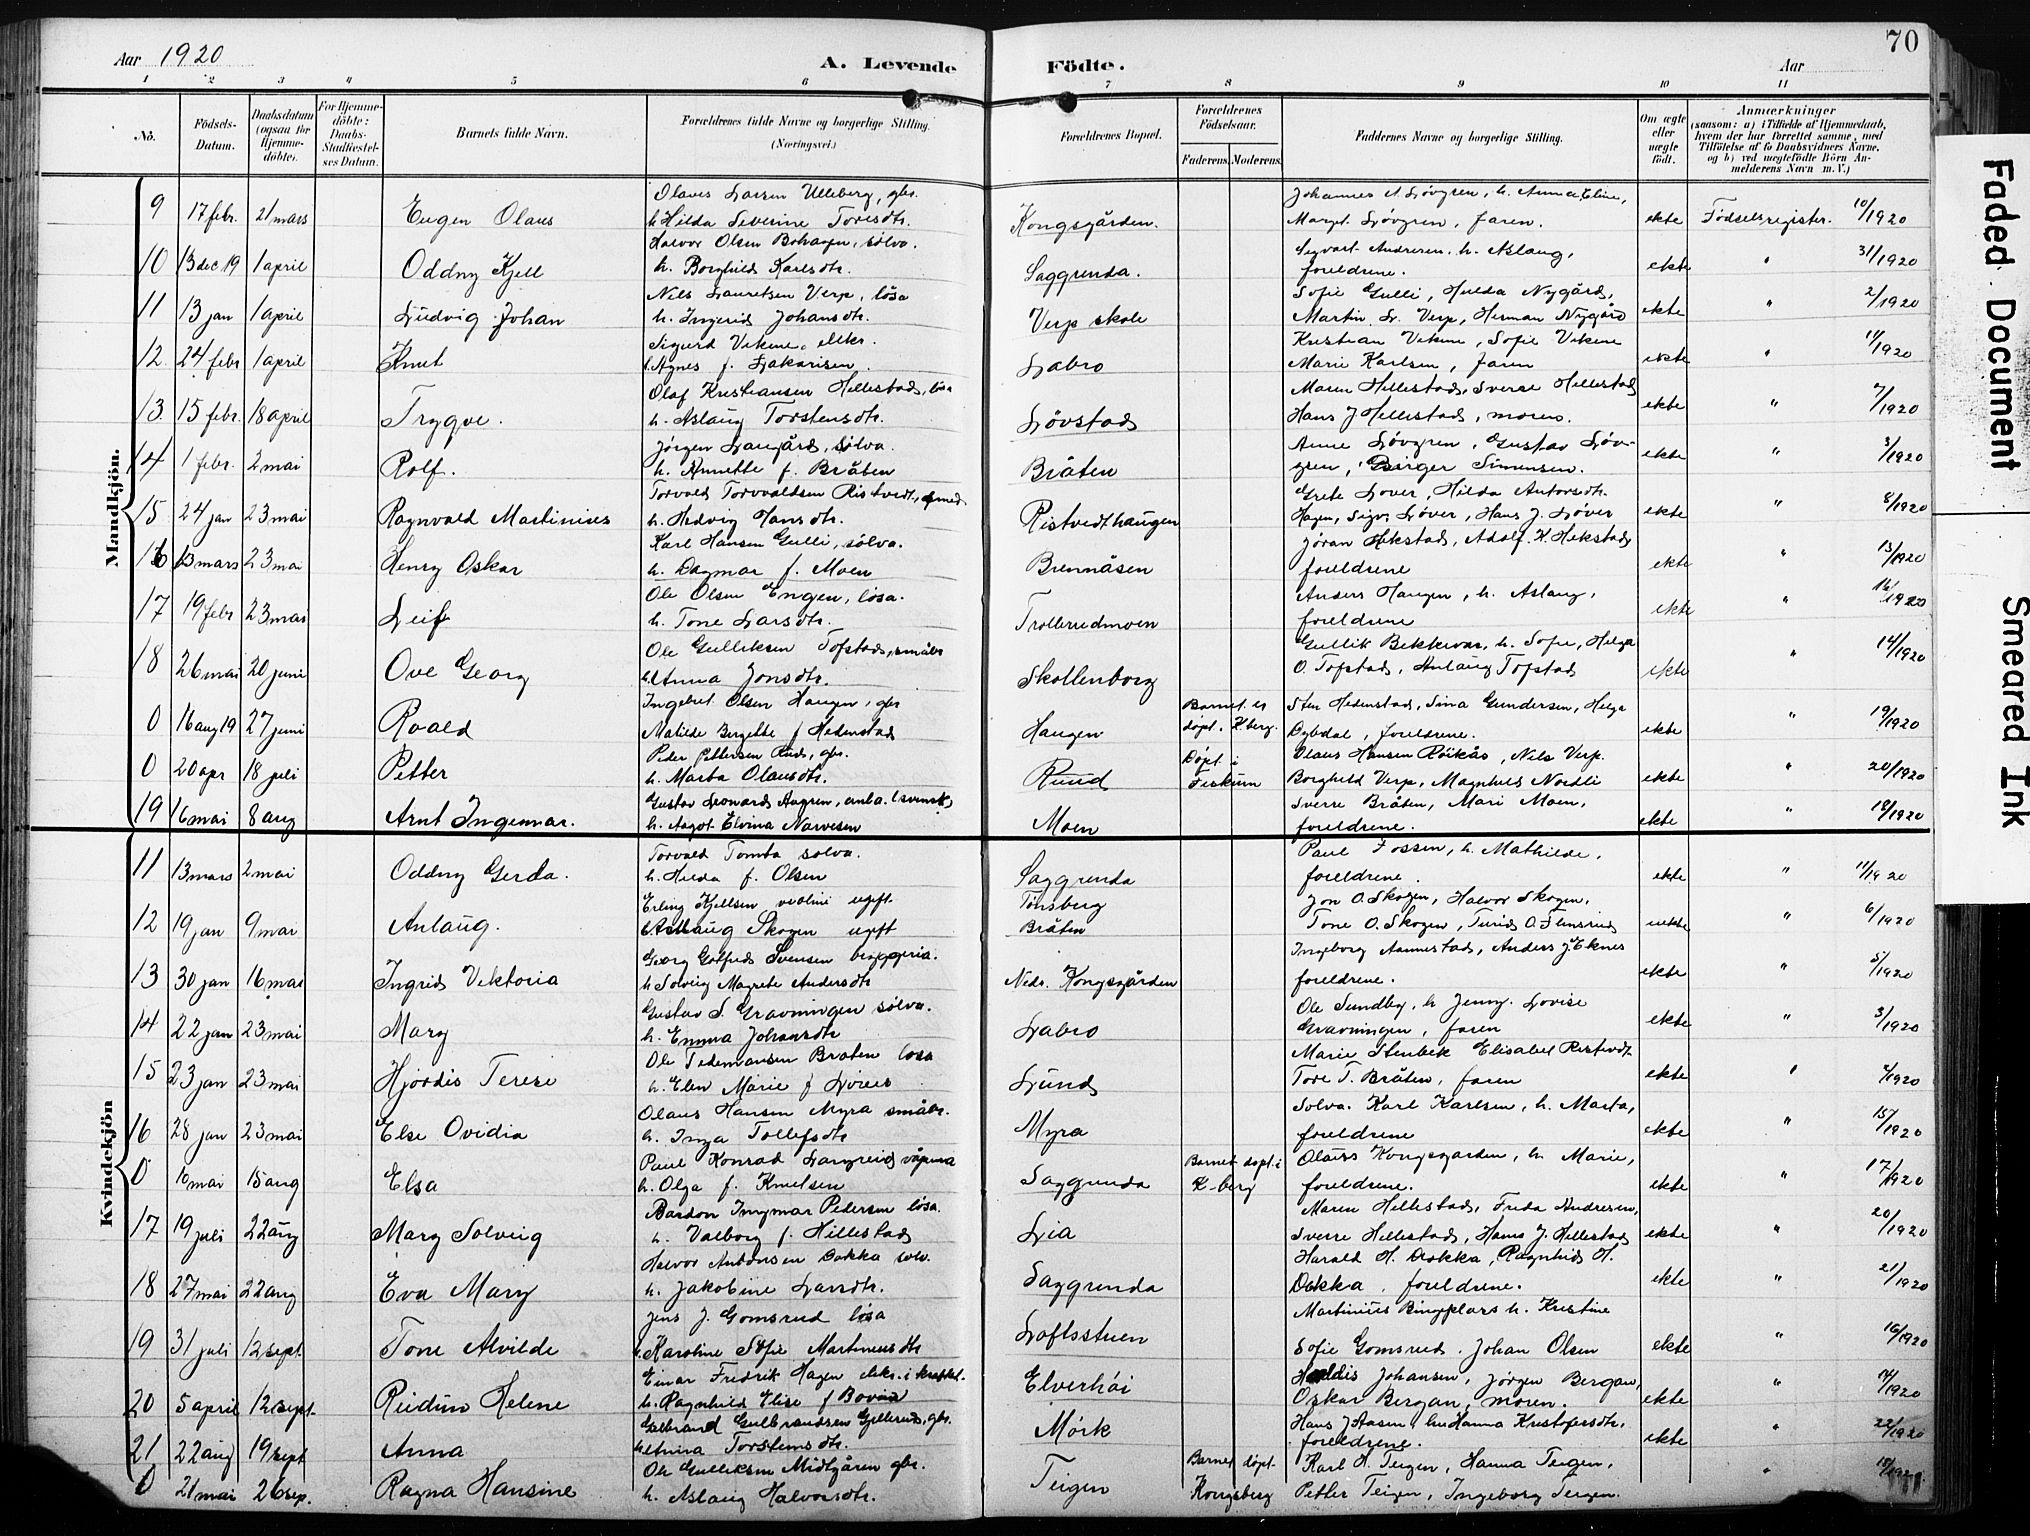 70
Aar 1920
A. Levende Födte.
Aar
1 2 3 4 5 6 7 8 9 10 11
No.
Födsels-Datum.
Daabsdatum (ogsaa for Hjemme-döbte).
For Hjemme-döbte: Daabs-Stadfæstel-ses Datum.
Barnets fulde Navn.
Forældrenes fulde Navne og borgerlige Stilling. (Næringsvei.)
Forældrenes Bopæl.
Forældrenes Födselsaar.
Faderens. Moderens.
Faddernes Navne og borgerlige Stilling.
Om ægte eller uægte födt.
Anmærkninger (saasom: a) i Tilfælde af Hjemmedaab, hvem der har forrettet samme, med Tilföielse af to Daabsvidners Navne, og b) ved uægtefödte Börn An-melderens Navn m. V.)
Mandkjön.
9 17 febr. 21 mars Eugen Olaus Olaves Larsen Ulleberg, gbr. h. Hilda Severine Toresdtr. Kongsgården. Johannes A Lövgren, h. Anna Eline, Margt. Lövgren, faren. ekte Födselsregister. 10/1920
10 13 dec 19 1 april Oddny Kjell Halvor Olsen Bohagen, sölva. h. Borghild Karlsdtr. Saggrenda. Sigvart Andresen, h. Aslaug, foreldrene. ekte " 31/1920
11 13 jan 1 april Ludvig Johan Nils Lauretsen Verp, lösa h. Ingerid Johansdtr. Verp skole Sofie Gulli, Hulda Nygård, Martin L. Verp, Herman Nygård ekte " 2/1920
12. 24 febr 1 april Knut Sigurd Vekene, elekr. h. Agnes f. Zakarisen. Labro Kristian Vekene, Sofie Vekene Marie Karlsen, faren ekte " 11/1920
13. 15 febr. 18 april Trygve. Olaf Kristiansen Hellestad, lösa h. Aslaug Torstensdtr. Lövstad Maren Hellestad, Sverre Hellestad Hans J Hellestad, moren. ekte " 7/1920
14 1 febr. 2 mai Rolf. Jörgen Langård, sölva. h. Annette f. Bråten Bråten Anne Lövgren, Gustav Löv-gren, Birger Simensen. ekte " 3/1920
15 24 jan 23 mai Ragnvald Martinius Torvald Torvaldsen Ristvedt, smed h. Hedvig Hansdtr. Ristvedthaugen Grete Lover, Hilda Antonsdtr. Hagen, Sigv. Löver, Hans J. Löver ekte " 8/1920
16 13 mars 23 mai Henry Oskar Karl Hansen Gulli, sölva. h. Dagmar f. Moen Brennåsen Jöran Hekstad, Adolf H. Hekstad foreldrene ekte " 13/1920
17 19 febr 23 mai Leif Ole Olsen Engen, lösa. h. Tone Larsdtr. Trollerudmoen Anders Haugen, h. Aslaug, foreldrene ekte " 16/1920
18 26 mai 20 juni Ove Georg Ole Gulliksen Tofstad, småbr h. Anna Jonsdtr. Skollenborg Gullik Bekkevar, h. Sofie, Helga O. Tofstad, Anlaug Tofstad ekte " 14/1920
0 16 aug 19 27 juni Roald Ingebret Olsen Haugen, gbr Matilde Bergette f Hedenstad Haugen Barnet er döpt. Kberg. Sten Hedenstad, Sina Gundersen, Helga Dybdal, foreldrene. ekte " 19/1920
0 20 apr 18 juli Petter Peder Pettersen Ruud, gbr. h. Marta Olausdtr. Ruud Döpt i Fiskum Olaus Hansen Röikås, Nils Verp. Borghild Verp, Magnhild Nordli ekte " 20/1920
19 16 mai 8 aug Arnt Ingemar. Gustav Leonard Augren, anla. (svensk) h. Aagot Elvina Narvesen Moen Sverre Bråten, Mari Moen, foreldrene. ekte " 18/1920
Kvindekjön
11 13 mars 2 mai Oddny Gerda. Torvald Tomta solva. h. Hilda f. Olsen Saggrenda Paul Fossen, h. Mathilde, foreldrene. ekte " 11/1920
12 19 jan 9 mai Anlaug. Erling Kjellsen violini ugift. Aslaug Skogen ugift Tönsberg Bråten Jon O. Skogen, Halvor Skogen, Tone O. Skogen, Turid O. Flensrud uekte " 6/1920
13 30 jan 16 mai Ingrid Viktoria Georg Gotfred Svensen bryggeria. h Solveig Magrete Andersdtr Nedr. Kongsgården Ingeborg Aannestad, Anders J. Eknes foreldrene. ekte " 5/1920
14 22 jan 23 mai Mary Gustav S. Gravningen sölva. h. Emma Johansdtr Labro Ole Sundby, h Jenny. Lovise Gravningen, faren ekte " 3/1920
15 23 jan 23 mai Hjördis Terese Ole Tidemansen Braten lösa h. Elen Marie f Lörees Lund Marie Stenbek Elisabet Ristvedt Tore T. Bråten, faren ekte " /1920
16 28 jan 23 mai Else Ovidia Olaus Hansen Myra småbr. h. Inga Tollefsdtr Myra Solva. Karl Karlsen, h. Marta, foreldrene ekte " 15/1920
0 10 mai 15 aug Elsa Paul Konrad Langreid våpena h. Olga f. Knutsen Saggrenda Barnet döpt. i K-berg Olaus Kongsgarden, h. Marie, foreldrene. ekte " 17/1920
17 19 juli 22 aug Mary Solveig Bardon Ingmar Pedersen lösa. h. Valborg f. Hillestad Lia Maren Hellestad, Frida Andresen, Sverre Hellestad, Hans J. Hellestad ekte " 20/1920
18 27 mai 22 aug Eva Mary Halvor Antonsen Dokka solv. h. Jakobine Larsdtr. Saggrenda Harald H. Dokka, Ragnhild H. Dokka, foreldrene. ekte " 21/1920
19 31 juli 12 sept. Tone Alvilde Jens J. Gomsrud lösa h. Karoline Sofie Martinusdtr Loftsstuen Martinius Bingplass h. Kristine Sofie Gomsrud. Johan Olsen ekte " 16/1920
20 5 april 12 sept. Reidun Helene Einar Fredrik Hagen eltr. i kraftst. h. Ragnhild Elise f Bovin Elverhöi Haldis Johansen, Jörgen Bergan, Oskar Bergan, moren. ekte " 14/1920
21 22 aug 19 sept Anna Gulbrand Gulbrandsen Gjellerud, gbr. h. Anna Torstensdtr. Mörk Hans J Aasen, h. Hanna Kristofersdtr. foreldrene. ekte " 22/1920
0 21 mai 26 sep. Ragna Hansine Ole Gulliksen Midtgåren gbr. h. Aslaug Halvorsdtr. Teigen Barnet döpt Kongsberg Karl H. Teigen, Hanna Teigen, Petter Teigen, Ingeborg Teigen. " 18/1920
Faded Document
Smeared Ink